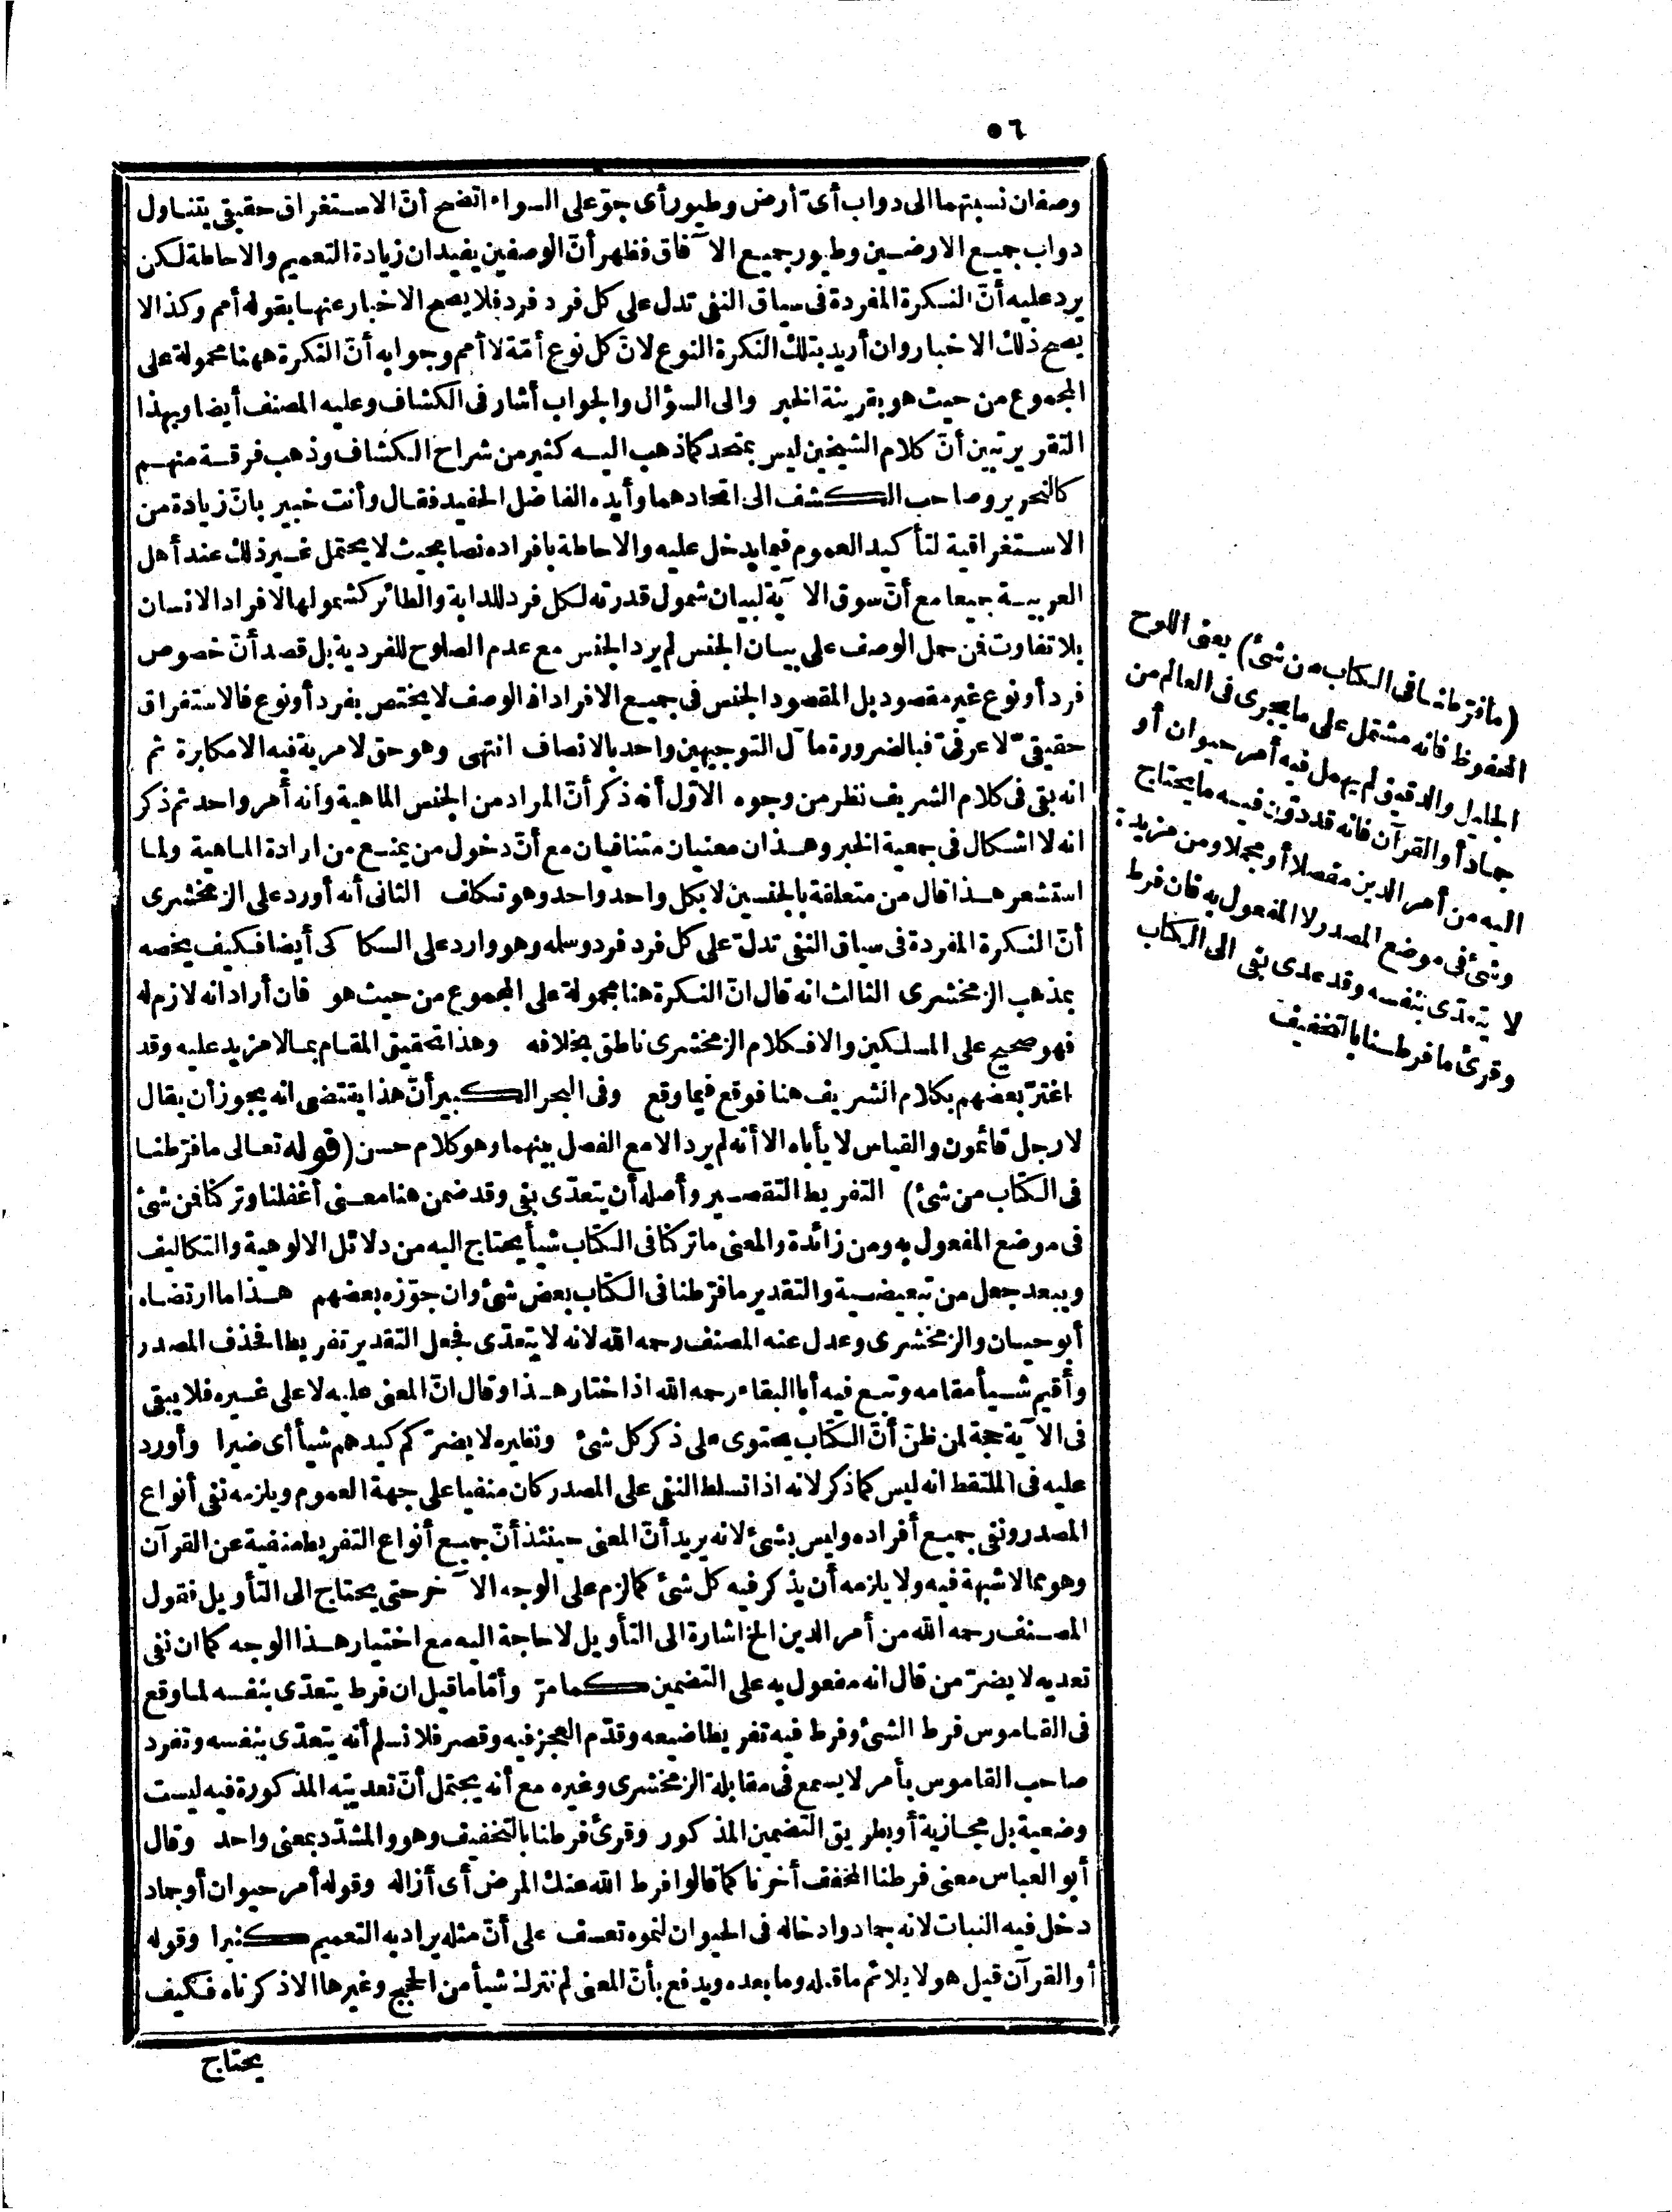 ٥٦
وصفان نسبتهما الى دواب أىّ أرض وطيور أى جوّ على السواء اتضح أنّ الاستغراق حقيقى يتناول
دواب جميع الارضين وطيور جميع الآفاق فظهر أنّ الوصفين يفيدان زيادة التعميم والاحاطة لكن
يرد عليه أنّ النكرة المفردة فى سياق النفى تدل على كل فرد فرد فلا يصح الاخبار عنها بقوله أمم وكذا لا
يصح ذلك الاخبار وان أريد بتلك النكرة النوع لانّ كل نوع أمّة لا أمم وجوابه أنّ النكرة ههنا محمولة على
المجموع من حيث هو بقرينة الخبر والى السؤال والجواب أشار فى الكشاف وعليه المصنف أيضا وبهذا
التقرير تبين أنّ كلام الشيخين ليس بمتحد كما ذهب اليه كثير من شراح الكشاف وذهب فرقة منهم
كالنحرير وصاحب الكشف الى اتحادهما وأيده الفاضل الحفيد فقال وأنت خبير بانّ زيادة من
الاستغراقية لتأكيد العموم فيما يدخل عليه والاحاطة بافراده نصا بحيث لا يحتمل غير ذلك عند أهل
العربية جميعا مع أنّ سوق الآية لبيان شمول قدرته لكل فرد للدابة والطائر كشمولها لافراد الانسان
بلا تفاوت فمن حمل الوصف على بيان الجنس لم يرد الجنس مع عدم الصلوح للفردية بل قصد أنّ خصوص
فرد أو نوع غير مقصود بل المقصود الجنس فى جميع الافراد اذ الوصف لا يختص بفرد أو نوع فالاستغراق
حقيقىّ لا عرفىّ فبالضرورة مآل التوجيهين واحد بالانصاف انتهى وهو حق لا مرية فيه الا مكابرة ثم
انه بقى فى كلام الشريف نظر من وجوه الاوّل أنه ذكر أنّ المراد من الجنس الماهية وانه أمر واحد ثم ذكر
انه لا اشكال فى جمعية الخبر وهذان معنيان متنافيان مع أنّ دخول من يمنع من ارادة الماهية ولما
استشعر هذا قال من متعلقة بالجنسين لا بكل واحد واحد وهو تكلف الثانى أنه أورد على الزمخشرى
أنّ النكرة المفردة فى سياق النفى تدلّ على كل فرد فرد وسلمه وهو وارد على السكاكى أيضا فكيف يخصه
بمذهب الزمخشرى الثالث انه قال انّ النكرة هنا محمولة على المجموع من حيث هو فان أراد انه لازم له
فهو صحيح على المسلكين والا فكلام الزمخشرى ناطق بخلافه وهذا تحقيق المقام بما لا مزيد عليه وقد
اغترّ بعضهم بكلام الشريف هنا فوقع فيما وقع وفى البحر الكبير أنّ هذا يقتضى انه يجوز أن يقال
لا رجل قائمون والقياس لا يأباه الا أنه لم يرد الا مع الفصل بينهما وهو كلام حسن (قوله تعالى ما فرّطنا
فى الكتاب من شئ) التفريط التقصير وأصله أن يتعدّى بفى وقد ضمن هنا معنى أغفلنا وتركنا فمن شئ
فى موضع المفعول به ومن زائدة والمعنى ما تركنا فى الكتاب شيأ يحتاج اليه من دلائل الالوهية والتكاليف
ويبعد جعل من تبعيضية والتقدير ما فرّطنا فى الكتاب بعض شئ وان جوّزه بعضهم هذا ما ارتضاه
أبو حيان والزمخشرى وعدل عنه المصنف رحمه الله لانه لا يتعدّى فجعل التقدير تفريطا فحذف المصدر
وأقيم شيأ مقامه وتبع فيه أبا البقاء رحمه الله اذ اختار هذا وقال انّ المعنى عليه لا على غيره فلا يبقى
فى الآية حجة لمن ظنّ أنّ الكتاب يحتوى على ذكر كل شئ ونظيره لا يضرّكم كيدهم شيأ أى ضيرا وأورد
عليه فى الملتقط انه ليس كما ذكر لانه اذا تسلط النفى على المصدر كان منفيا على جهة العموم ويلزمه نفى أنواع
المصدر ونفى جميع أفراده وليس بشئ لانه يريد أنّ المعنى حينئذ أنّ جميع أنواع التفريط منفية عن القرآن
وهو مما لا شبهة فيه ولا يلزمه أن يذكر فيه كل شئ كما لزم على الوجه الآخر حتى يحتاج الى التأويل فقول
المصنف رحمه الله من أمر الدين الخ اشارة الى التأويل لا حاجة اليه مع اختيار هذا الوجه كما ان نفى
تعديه لا يضرّ من قال انه مفعول به على التضمين كما مرّ وأمّا ما قيل ان فرط يتعدّى بنفسه لما وقع
فى القاموس فرط الشئ وفرط فيه تفريطا ضيعه وقدّم العجز فيه وقصر فلا نسلم أنه يتعدّى بنفسه وتفرد
صاحب القاموس بأمر لا يسمع فى مقابلة الزمخشرى وغيره مع أنه يحتمل أنّ تعديته المذكورة فيه ليست
وضعية بل مجازية أو بطريق التضمين المذكور وقرئ فرطنا بالتخفيف وهو والمشدّد بمعنى واحد وقال
أبو العباس معنى فرطنا المخفف أخرنا كما قالوا فرط الله عنك المرض أى أزاله وقوله أمر حيوان أو جماد
دخل فيه النبات لانه جماد وادخاله فى الحيوان لنموه تعسف على أنّ مثله يراد به التعميم كثيرا وقوله
أو القرآن قيل هو لا يلائم ما قبله وما بعده ويدفع بأنّ المعنى لم نترك شيأ من الحجج وغيرها الا ذكرناه فكيف
يحتاج
(ما فرّطنا فى الكتاب من شئ) يعنى اللوح
المحفوظ فانه مشتمل على ما يجرى فى العالم من
الجليل والدقيق لم يهمل فيه أمر حيوان أو
جماد أو القرآن فانه قد دوّن فيه ما يحتاج
اليه من أمر الدين مفصلا أو مجملا ومن مزيدة
وشئ فى موضع المصدر لا المفعول به فان فرط
لا يتعدّى بنفسه وقد عدى بفى الى الكتاب
وقرئ ما فرطنا بالتخفيف